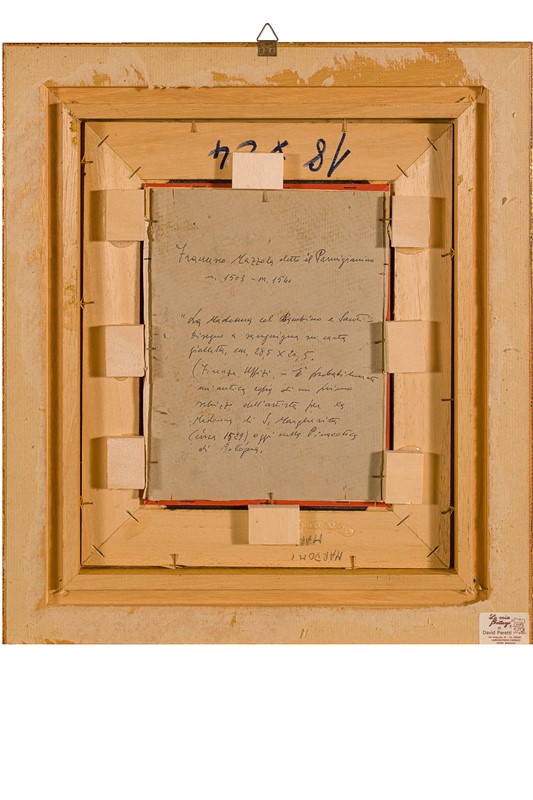 18 x 24
Francesco Mazzola detto il Parmigianino
n. 1503 - m. 1540
"La Madonna col Bambino e Santi -
Disegno a sanguigna su carta
gialletta, cm. 28,5 x 20,5.
(Firenze Uffizi. - È probabilmente
un'antica copia di un primo
schizzo dell'artista per la
Madonna di S. Margherita
(circa 1529) oggi nella Pinacoteca
di Bologna.
MAR
MARDOMI
La mia
Bottega
di
David Peretti